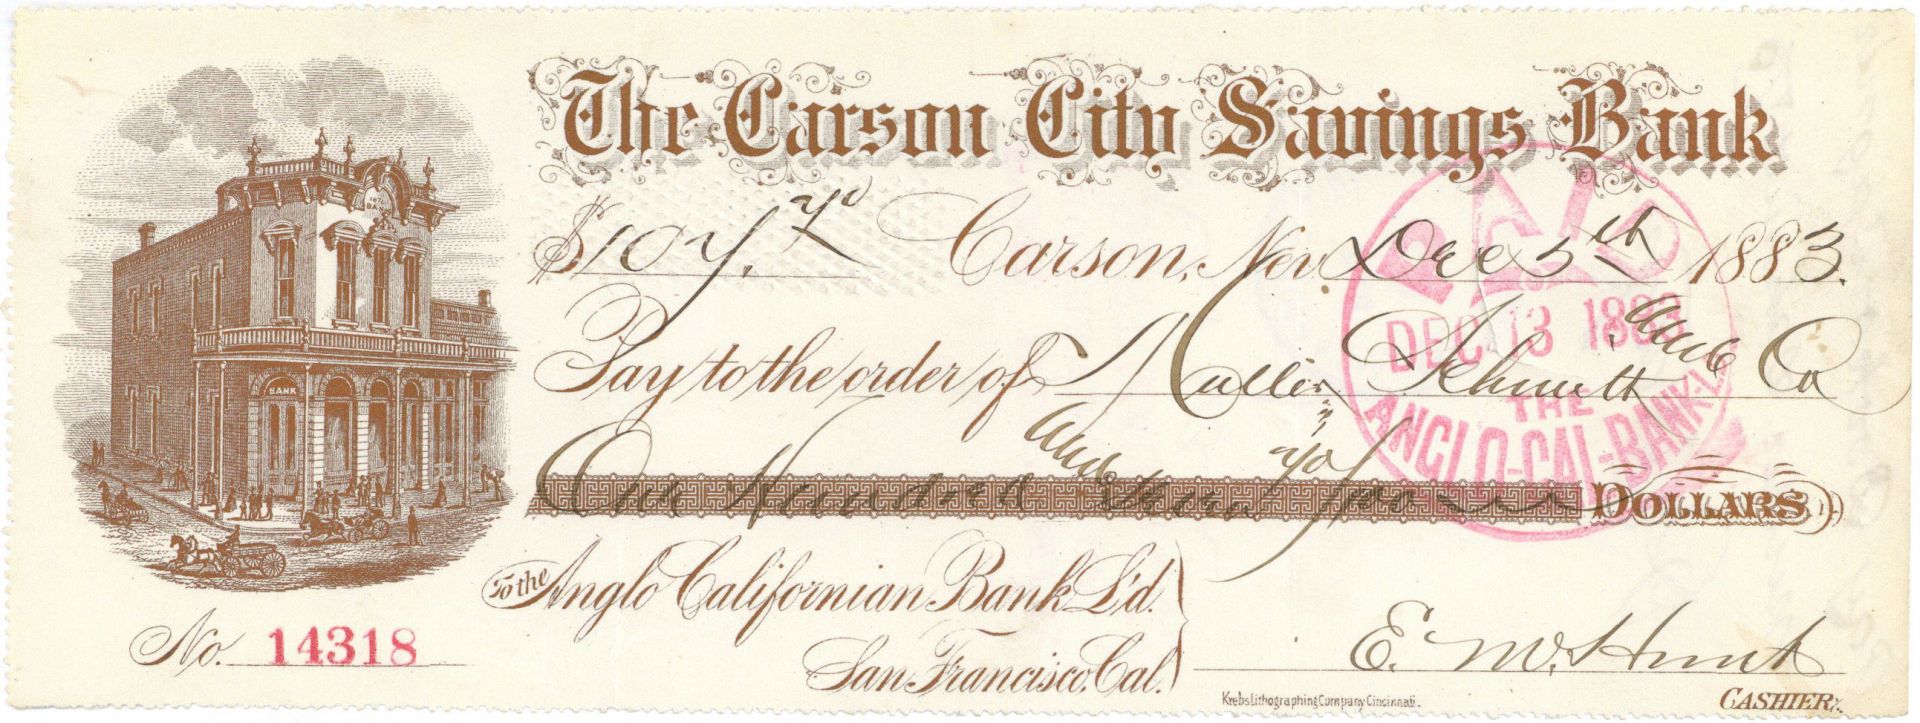 The Carson City Savings Bank
1876
BANK
BANK
Carson, Nev Dec 5th 1883.
PAID
DEC 13 1883
THE
ANGLO-CAL-BANK-L
Pay to the order of Muller Schmitt and Co
One Hundred and DOLLARS
To the Anglo Californian Bank L'd.
San Francisco, Cal.
No. 14318
E. M. Hunt
Krebs Lithographing Company Cincinnati.
CASHIER.